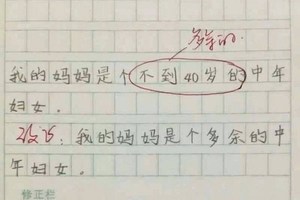 多余的.
我的妈妈是个不到40岁的中年
妇女.
改巧:我的妈妈是个多余的中
年妇女.
修正栏